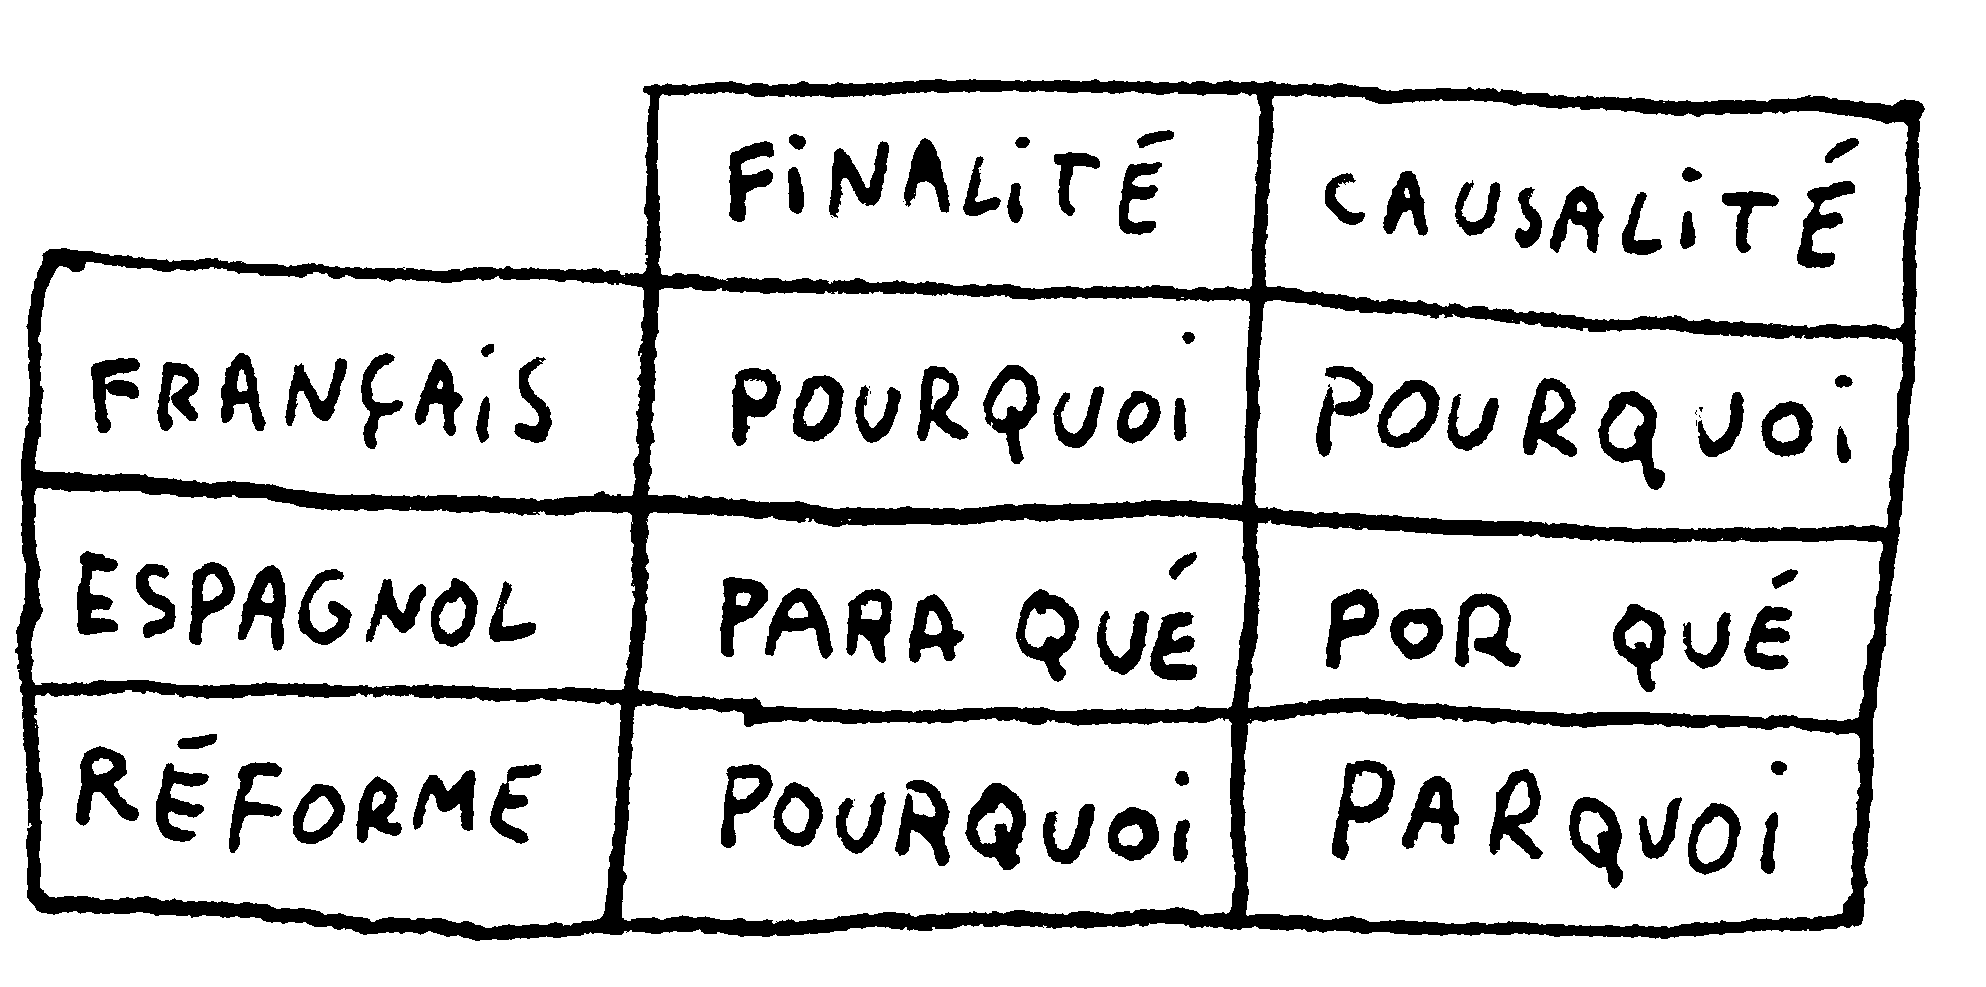 FiNALiTÉ CAUSALiTÉ
FRANÇAiS POURQUOi POURQUOi
ESPAGNOL PARA QUÉ POR QUÉ
RÉFORME POURQUOi PARQUOi